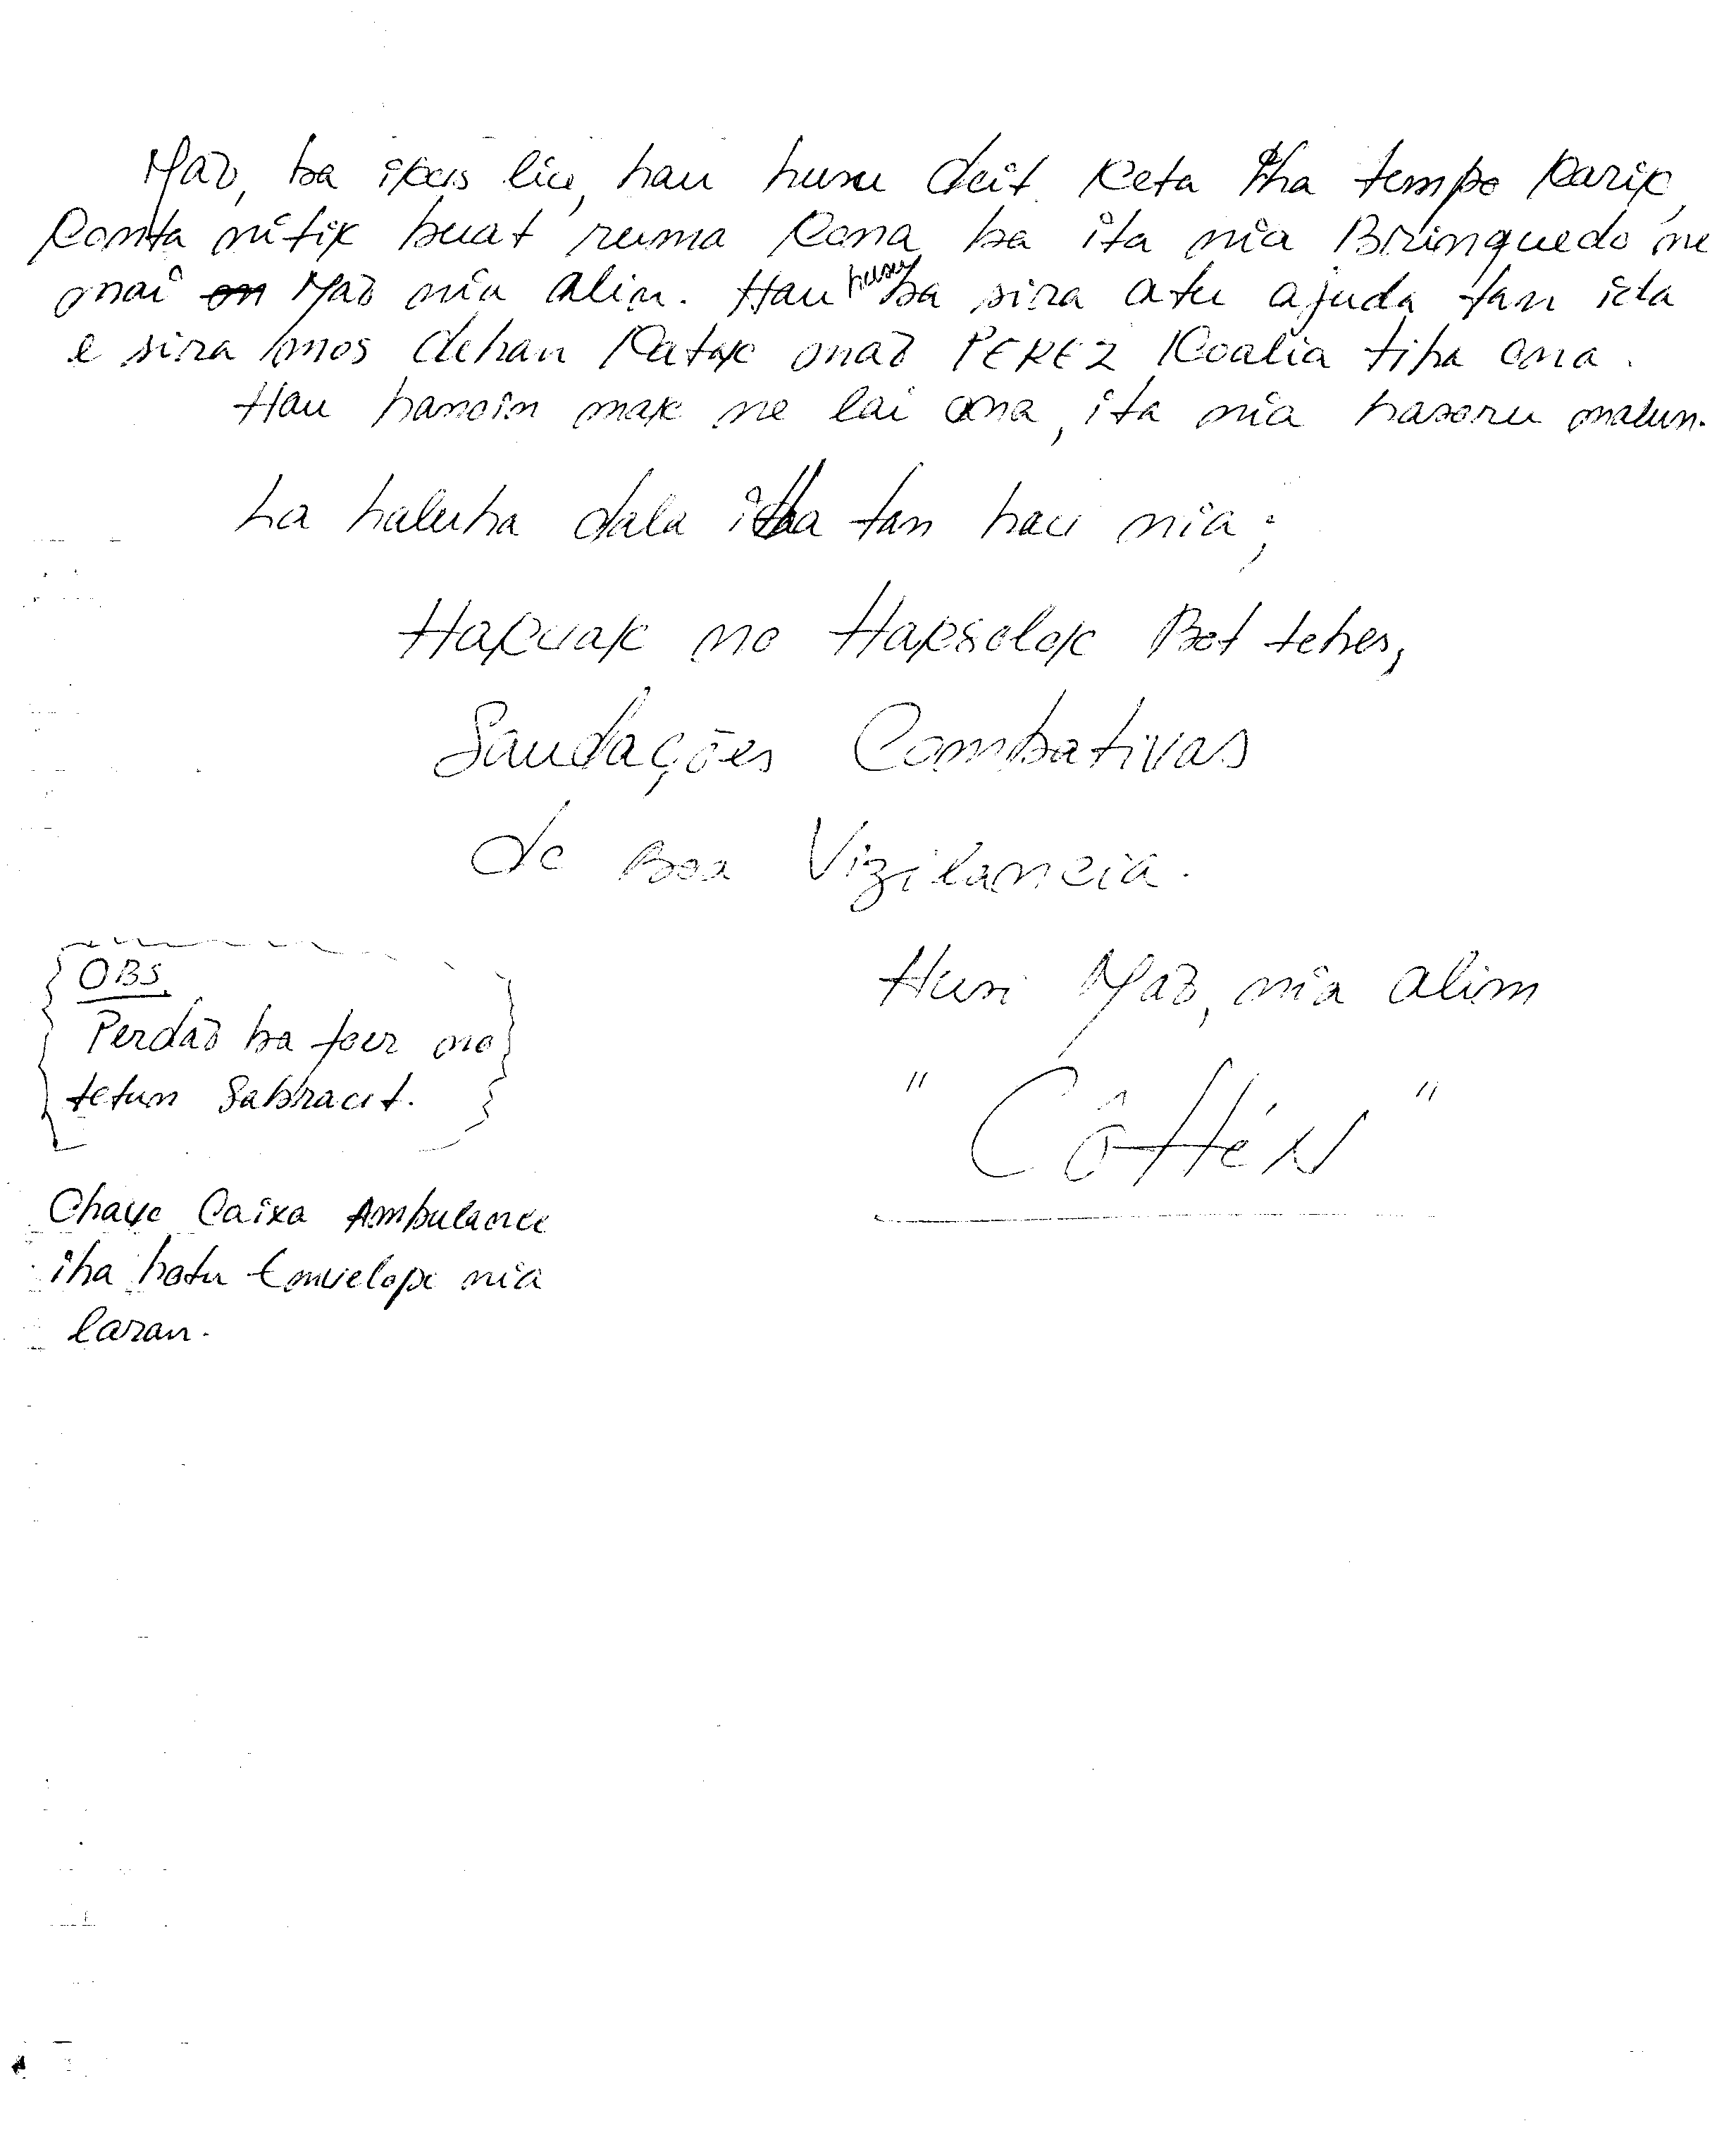 Maõ, ba ikus liu, hau husu deit keta iha tempo karik,
konta nitik buat ruma kona ba ita nia Brinquedo ne
mai on Maõ nia alin. Hau husu ba sira atu ajuda tan ida
e sira mos dehan katak maõ PEREZ koalia tiha ona.
Hau hanoin mak ne lai ona, ita nia hasoru malun.
La haluha dala ida tan hau nia;
Hakuak no Haksolok Bot tebes,
Saudações Combativas
de Boa Vizilancia.
Husi Maõ, nia alin
"CôHéN"
OBS.
Perdaõ ba foer no
tetun Sabraut.
Chave Caixa Ambulance
iha hotu Envelope nia
laran.